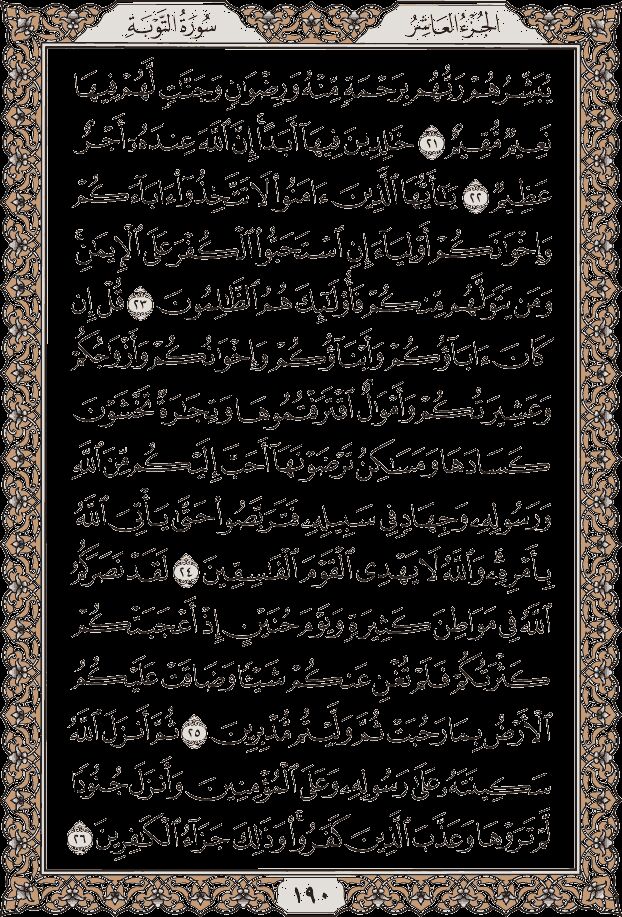 الجُزْءُ العَاشِرُ
سُورَةُ التَّوْبَةِ
يُبَشِّرُهُمْ رَبُّهُم بِرَحْمَةٍ مِّنْهُ وَرِضْوَانٍ وَجَنَّاتٍ لَّهُمْ فِيهَا
نَعِيمٌ مُّقِيمٌ ٢١ خَالِدِينَ فِيهَا أَبَدًا إِنَّ اللَّهَ عِندَهُ أَجْرٌ
عَظِيمٌ ٢٢ يَا أَيُّهَا الَّذِينَ ءَامَنُوا لَا تَتَّخِذُوا ءَابَاءَكُمْ
وَإِخْوَانَكُمْ أَوْلِيَاءَ إِنِ اسْتَحَبُّوا الْكُفْرَ عَلَى الْإِيمَانِ
وَمَن يَتَوَلَّهُم مِّنكُمْ فَأُولَٰئِكَ هُمُ الظَّالِمُونَ ٢٣ قُلْ إِن
كَانَ ءَابَاؤُكُمْ وَأَبْنَاؤُكُمْ وَإِخْوَانُكُمْ وَأَزْوَاجُكُمْ
وَعَشِيرَتُكُمْ وَأَمْوَالٌ اقْتَرَفْتُمُوهَا وَتِجَارَةٌ تَخْشَوْنَ
كَسَادَهَا وَمَسَاكِنُ تَرْضَوْنَهَا أَحَبَّ إِلَيْكُم مِّنَ اللَّهِ
وَرَسُولِهِ وَجِهَادٍ فِي سَبِيلِهِ فَتَرَبَّصُوا حَتَّىٰ يَأْتِيَ اللَّهُ
بِأَمْرِهِ وَاللَّهُ لَا يَهْدِي الْقَوْمَ الْفَاسِقِينَ ٢٤ لَقَدْ نَصَرَكُمُ
اللَّهُ فِي مَوَاطِنَ كَثِيرَةٍ وَيَوْمَ حُنَيْنٍ إِذْ أَعْجَبَتْكُمْ
كَثْرَتُكُمْ فَلَمْ تُغْنِ عَنكُمْ شَيْئًا وَضَاقَتْ عَلَيْكُمُ
الْأَرْضُ بِمَا رَحُبَتْ ثُمَّ وَلَّيْتُم مُّدْبِرِينَ ٢٥ ثُمَّ أَنزَلَ اللَّهُ
سَكِينَتَهُ عَلَىٰ رَسُولِهِ وَعَلَى الْمُؤْمِنِينَ وَأَنزَلَ جُنُودًا
لَّمْ تَرَوْهَا وَعَذَّبَ الَّذِينَ كَفَرُوا وَذَٰلِكَ جَزَاءُ الْكَافِرِينَ ٢٦
١٩٠